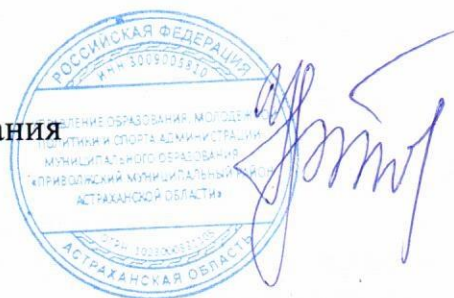 РОССИЙСКАЯ ФЕДЕРАЦИЯ
ИНН 3009005820
УПРАВЛЕНИЕ ОБРАЗОВАНИЯ, МОЛОДЕЖНОЙ
ПОЛИТИКИ И СПОРТА АДМИНИСТРАЦИИ
МУНИЦИПАЛЬНОГО ОБРАЗОВАНИЯ
«ПРИВОЛЖСКИЙ МУНИЦИПАЛЬНЫЙ РАЙОН
АСТРАХАНСКОЙ ОБЛАСТИ»
ОГРН
АСТРАХАНСКАЯ ОБЛАСТЬ
ания